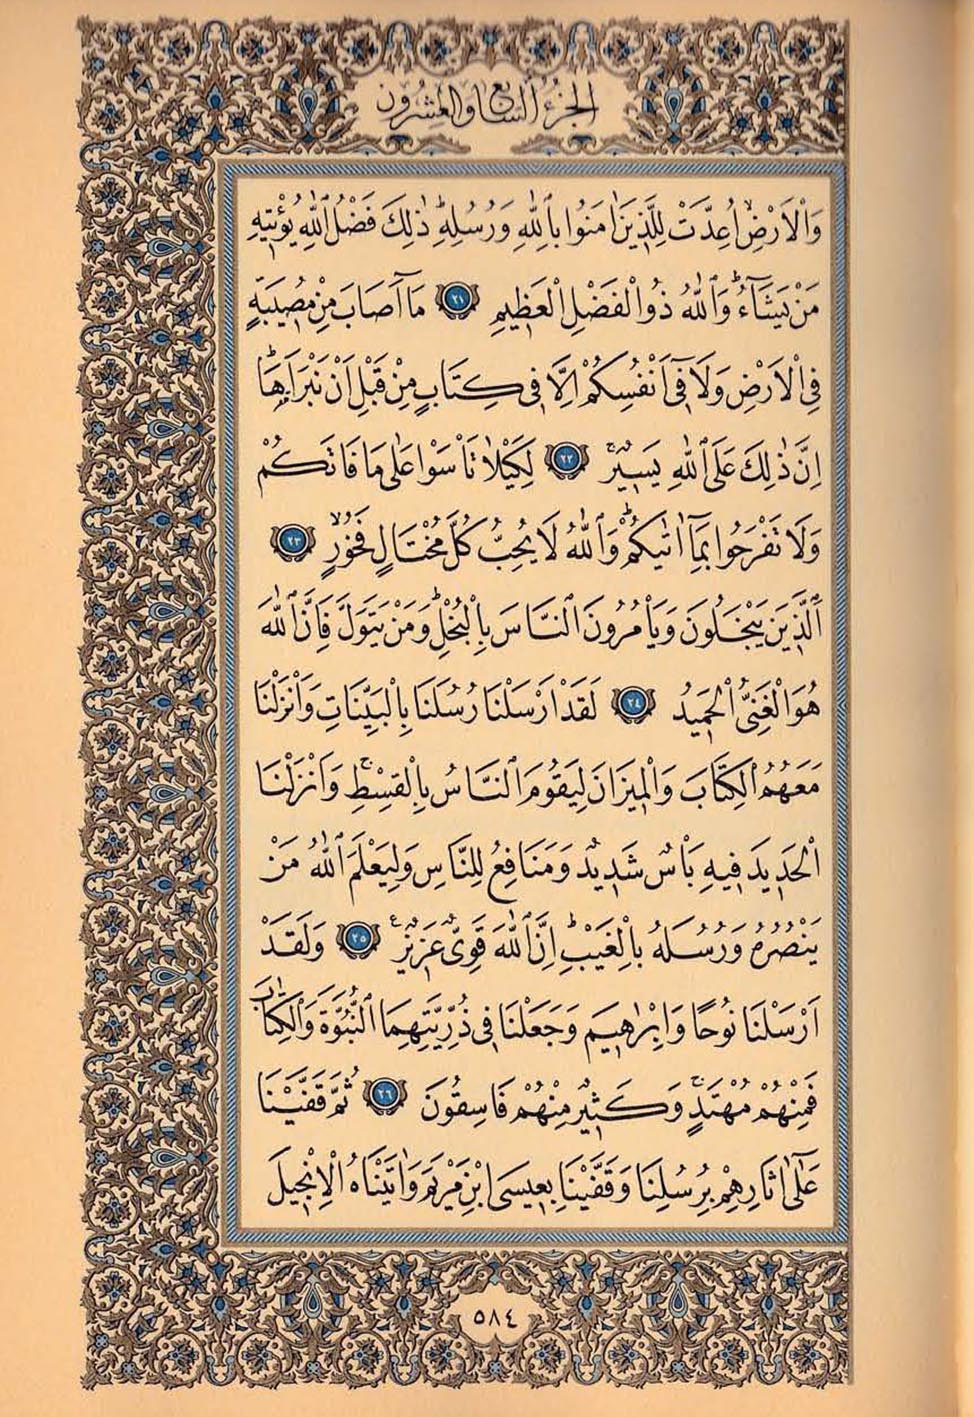 الجزء السابع والعشرون
وَالْاَرْضِۙ اُعِدَّتْ لِلَّذٖينَ اٰمَنُوا بِاللّٰهِ وَرُسُلِهٖۜ ذٰلِكَ فَضْلُ اللّٰهِ يُؤْتٖيهِ
مَنْ يَشَٓاءُۜ وَاللّٰهُ ذُوالْفَضْلِ الْعَظٖيمِ ﴿٢١﴾ مَٓا اَصَابَ مِنْ مُصٖيبَةٍ
فِي الْاَرْضِ وَلَا فٖٓي اَنْفُسِكُمْ اِلَّا فٖي كِتَابٍ مِنْ قَبْلِ اَنْ نَبْرَاَهَاۜ
اِنَّ ذٰلِكَ عَلَى اللّٰهِ يَسٖيرٌۚ ﴿٢٢﴾ لِكَيْلَا تَأْسَوْا عَلٰى مَا فَاتَكُمْ
وَلَا تَفْرَحُوا بِمَٓا اٰتٰيكُمْۜ وَاللّٰهُ لَا يُحِبُّ كُلَّ مُخْتَالٍ فَخُورٍۙ ﴿٢٣﴾
اَلَّذٖينَ يَبْخَلُونَ وَيَأْمُرُونَ النَّاسَ بِالْبُخْلِۜ وَمَنْ يَتَوَلَّ فَاِنَّ اللّٰهَ
هُوَ الْغَنِيُّ الْحَمٖيدُ ﴿٢٤﴾ لَقَدْ اَرْسَلْنَا رُسُلَنَا بِالْبَيِّنَاتِ وَاَنْزَلْنَا
مَعَهُمُ الْكِتَابَ وَالْمٖيزَانَ لِيَقُومَ النَّاسُ بِالْقِسْطِۚ وَاَنْزَلْنَا
الْحَدٖيدَ فٖيهِ بَأْسٌ شَدٖيدٌ وَمَنَافِعُ لِلنَّاسِ وَلِيَعْلَمَ اللّٰهُ مَنْ
يَنْصُرُهُ وَرُسُلَهُ بِالْغَيْبِۜ اِنَّ اللّٰهَ قَوِيٌّ عَزٖيزٌࣖ ﴿٢٥﴾ وَلَقَدْ
اَرْسَلْنَا نُوحًا وَاِبْرٰهٖيمَ وَجَعَلْنَا فٖي ذُرِّيَّتِهِمَا النُّبُوَّةَ وَالْكِتَابَ
فَمِنْهُمْ مُهْتَدٍۚ وَكَثٖيرٌ مِنْهُمْ فَاسِقُونَ ﴿٢٦﴾ ثُمَّ قَفَّيْنَا
عَلٰٓى اٰثَارِهِمْ بِرُسُلِنَا وَقَفَّيْنَا بِعٖيسَى ابْنِ مَرْيَمَ وَاٰتَيْنَاهُ الْاِنْجٖيلَ
٥٨٤